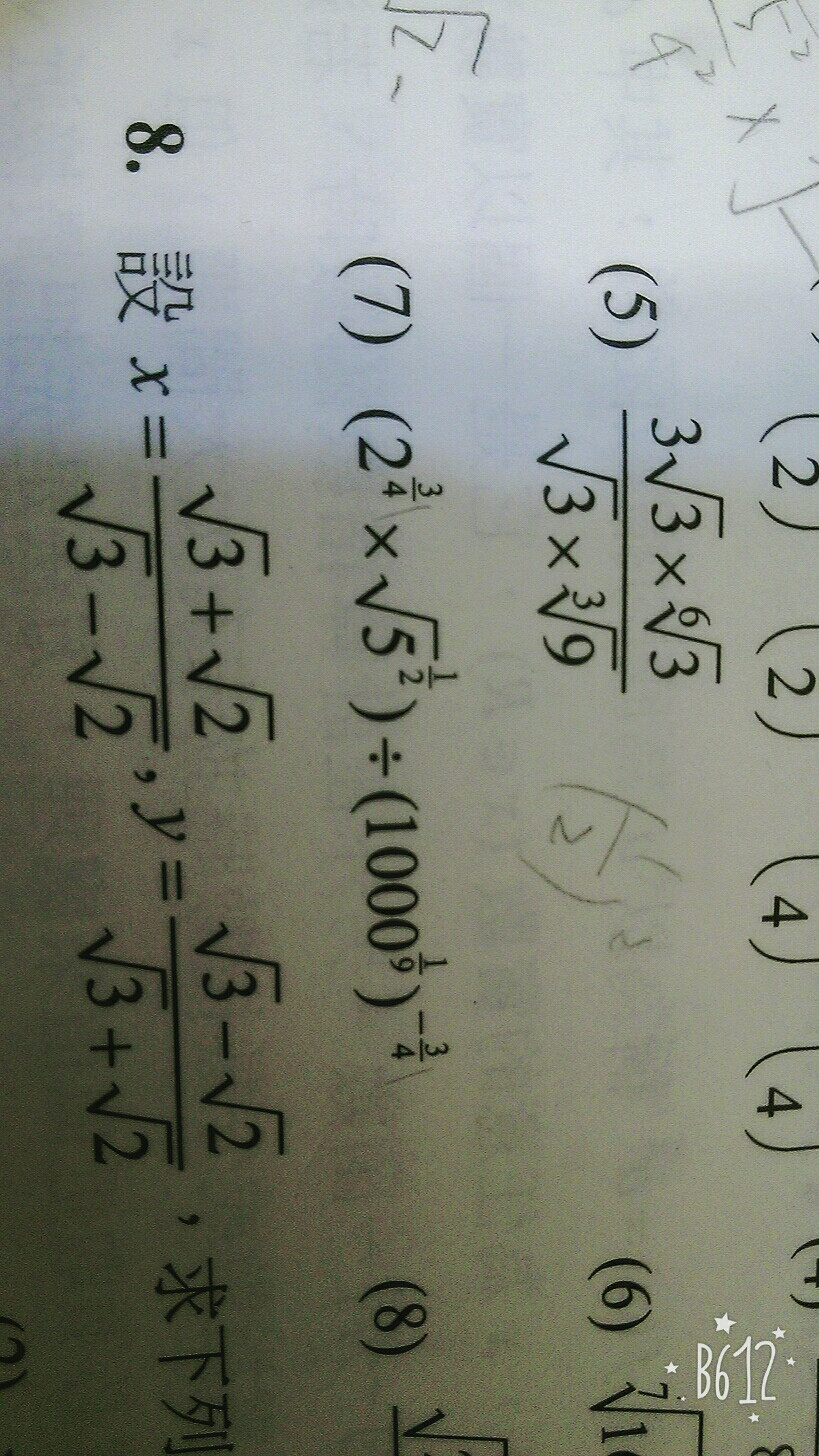 (2) (2) (4) (4) (4)
(5) \frac{3\sqrt{3} \times \sqrt[6]{3}}{\sqrt{3} \times \sqrt[3]{9}} (6)
(7) (2^{\frac{3}{4}} \times \sqrt{5}^{\frac{1}{2}}) ÷ (1000^{\frac{1}{9}})^{-\frac{3}{4}} (8)
8. 設 x = \frac{\sqrt{3}+\sqrt{2}}{\sqrt{3}-\sqrt{2}}, y = \frac{\sqrt{3}-\sqrt{2}}{\sqrt{3}+\sqrt{2}}, 求下列
B612